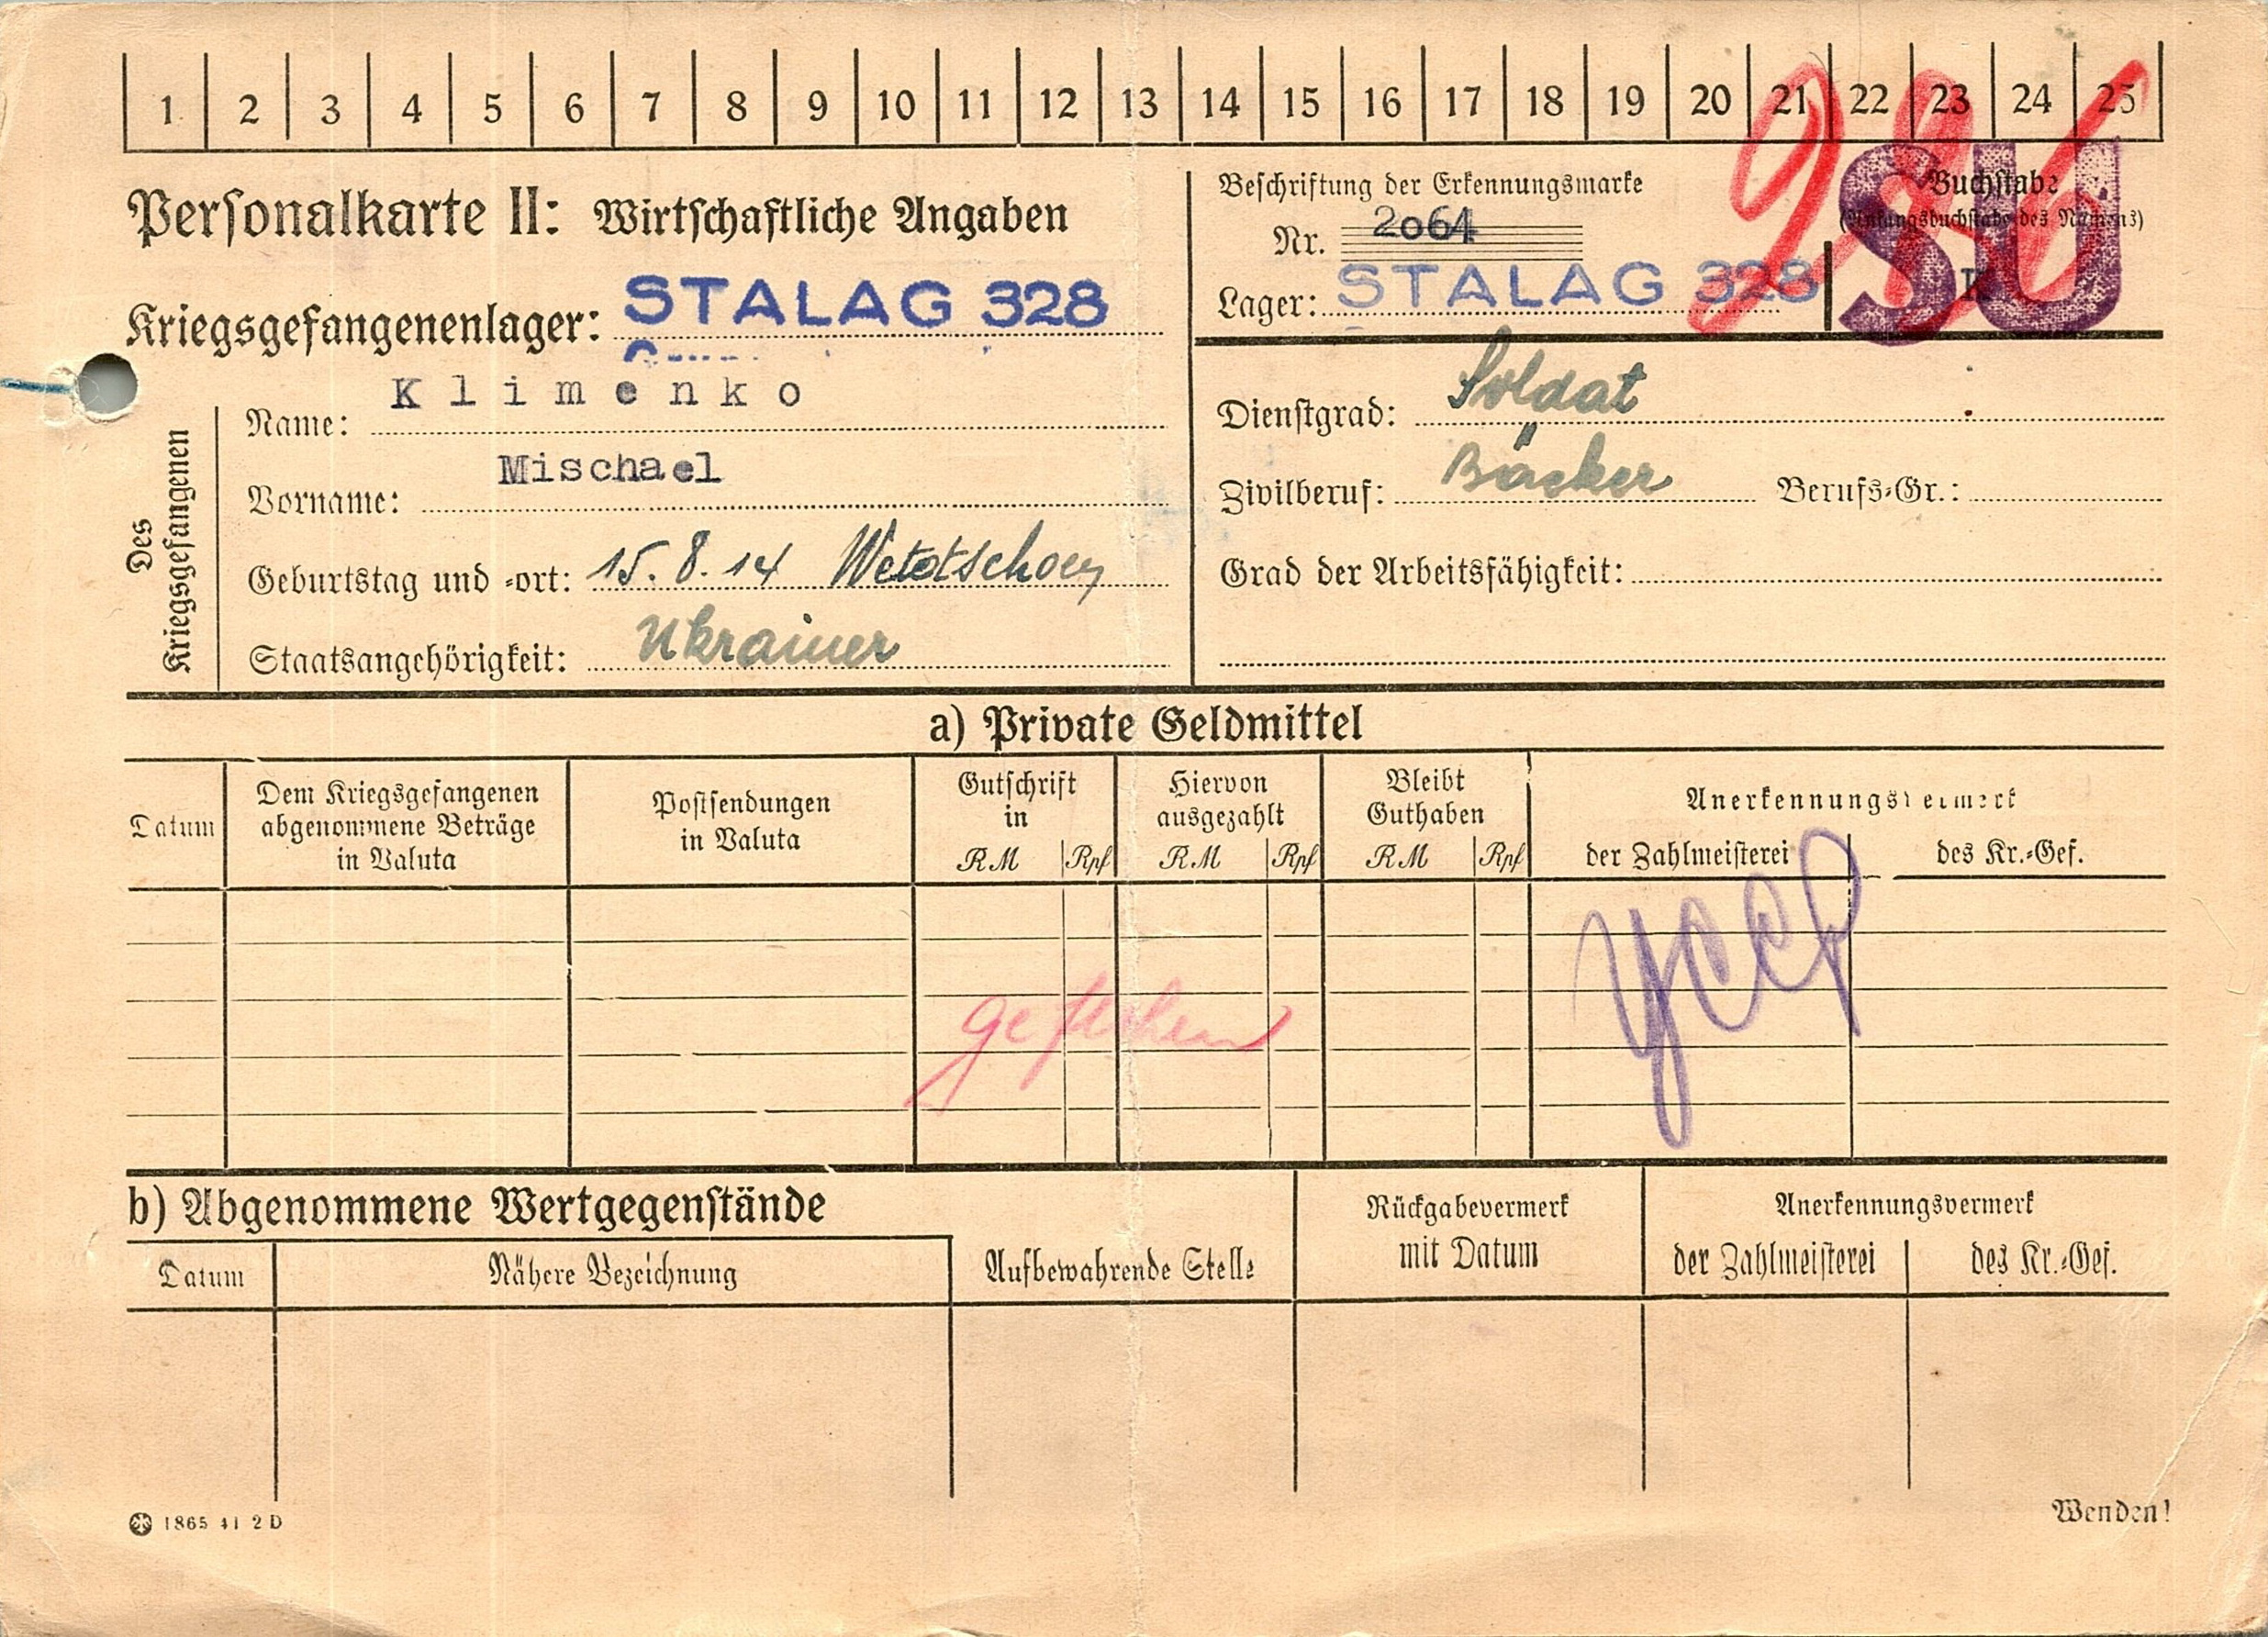 1 2 3 4 5 6 7 8 9 10 11 12 13 14 15 16 17 18 19 20 21 22 23 24 25
Personalkarte II: Wirtschaftliche Angaben
Kriegsgefangenenlager: STALAG 328
Des Kriegsgefangenen
Name: Klimenko
Vorname: Mischael
Geburtstag und -ort: 15.8.14
Staatsangehörigkeit: Ukrainer
Beschriftung der Erkennungsmarke
Nr. 2064
Lager: STALAG 328
Buchstabe
(Anfangsbuchstabe des Namens)
K
SU
Dienstgrad: Soldat
Zivilberuf: Bäcker Berufs-Gr.:
Grad der Arbeitsfähigkeit:
a) Private Geldmittel
Datum
Dem Kriegsgefangenen
abgenommene Beträge
in Valuta
Postsendungen
in Valuta
Gutschrift
in
RM Rpf
Hiervon
ausgezahlt
RM Rpf
Bleibt
Guthaben
RM Rpf
Anerkennungsvermerk
der Zahlmeisterei des Kr.-Gef.
УССР
b) Abgenommene Wertgegenstände
Datum Nähere Bezeichnung
Aufbewahrende Stelle
Rückgabevermerk
mit Datum
Anerkennungsvermerk
der Zahlmeisterei des Kr.-Gef.
1865 41 2 D
Wenden!